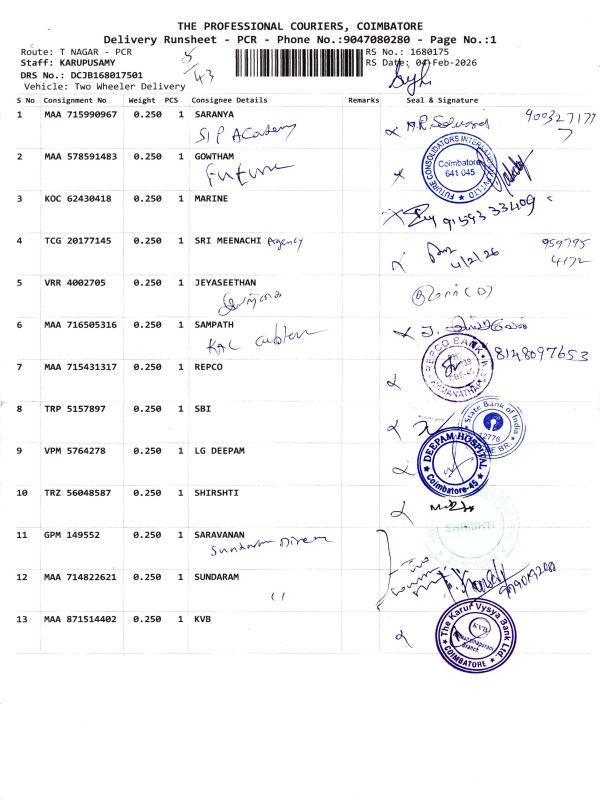 THE PROFESSIONAL COURIERS, COIMBATORE
Delivery Runsheet - PCR - Phone No.:9047080280 - Page No.:1
Route: T NAGAR - PCR
RS No.: 1680175
Staff: KARUPUSAMY
RS Date: 04-Feb-2026
DRS No.: DCJB168017501
Vehicle: Two Wheeler Delivery
5/43
S No Consignment No Weight PCS Consignee Details Remarks Seal & Signature
1 MAA 715990967 0.250 1 SARANYA
SIP Academy
2 MAA 578591483 0.250 1 GOWTHAM
Future
FUTURE CONSOLIDATORS Coimbatore 641 045
3 KOC 62430418 0.250 1 MARINE
4 TCG 20177145 0.250 1 SRI MEENACHI Agency
4/2/26
959795
4172
5 VRR 4002705 0.250 1 JEYASEETHAN
6 MAA 716505316 0.250 1 SAMPATH
8148097653
7 MAA 715431317 0.250 1 REPCO
REPCO BANK
8 TRP 5157897 0.250 1 SBI
State Bank of India
9 VPM 5764278 0.250 1 LG DEEPAM
DEEPAM HOSPITAL Coimbatore-45
10 TRZ 56048587 0.250 1 SHIRSHTI
SHIRISHTI
11 GPM 149552 0.250 1 SARAVANAN
Sundaram
12 MAA 714822621 0.250 1 SUNDARAM
13 MAA 871514402 0.250 1 KVB
The Karur Vysya Bank Ltd KVB Branch COIMBATORE